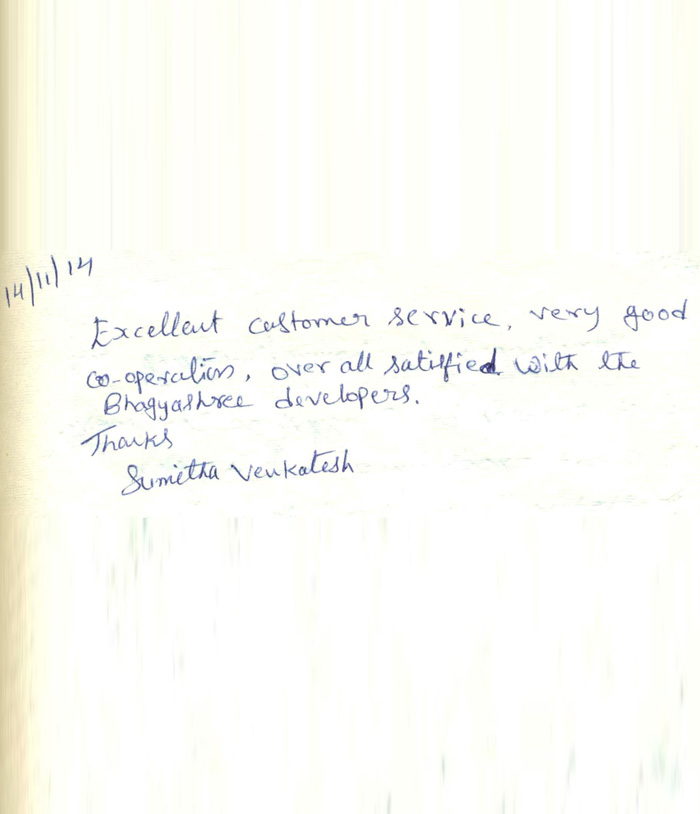 14/11/14
Excellent customer service, very good
co-operation, over all satisfied with the
Bhagyashree developers.
Thanks
Sumetha Venkatesh